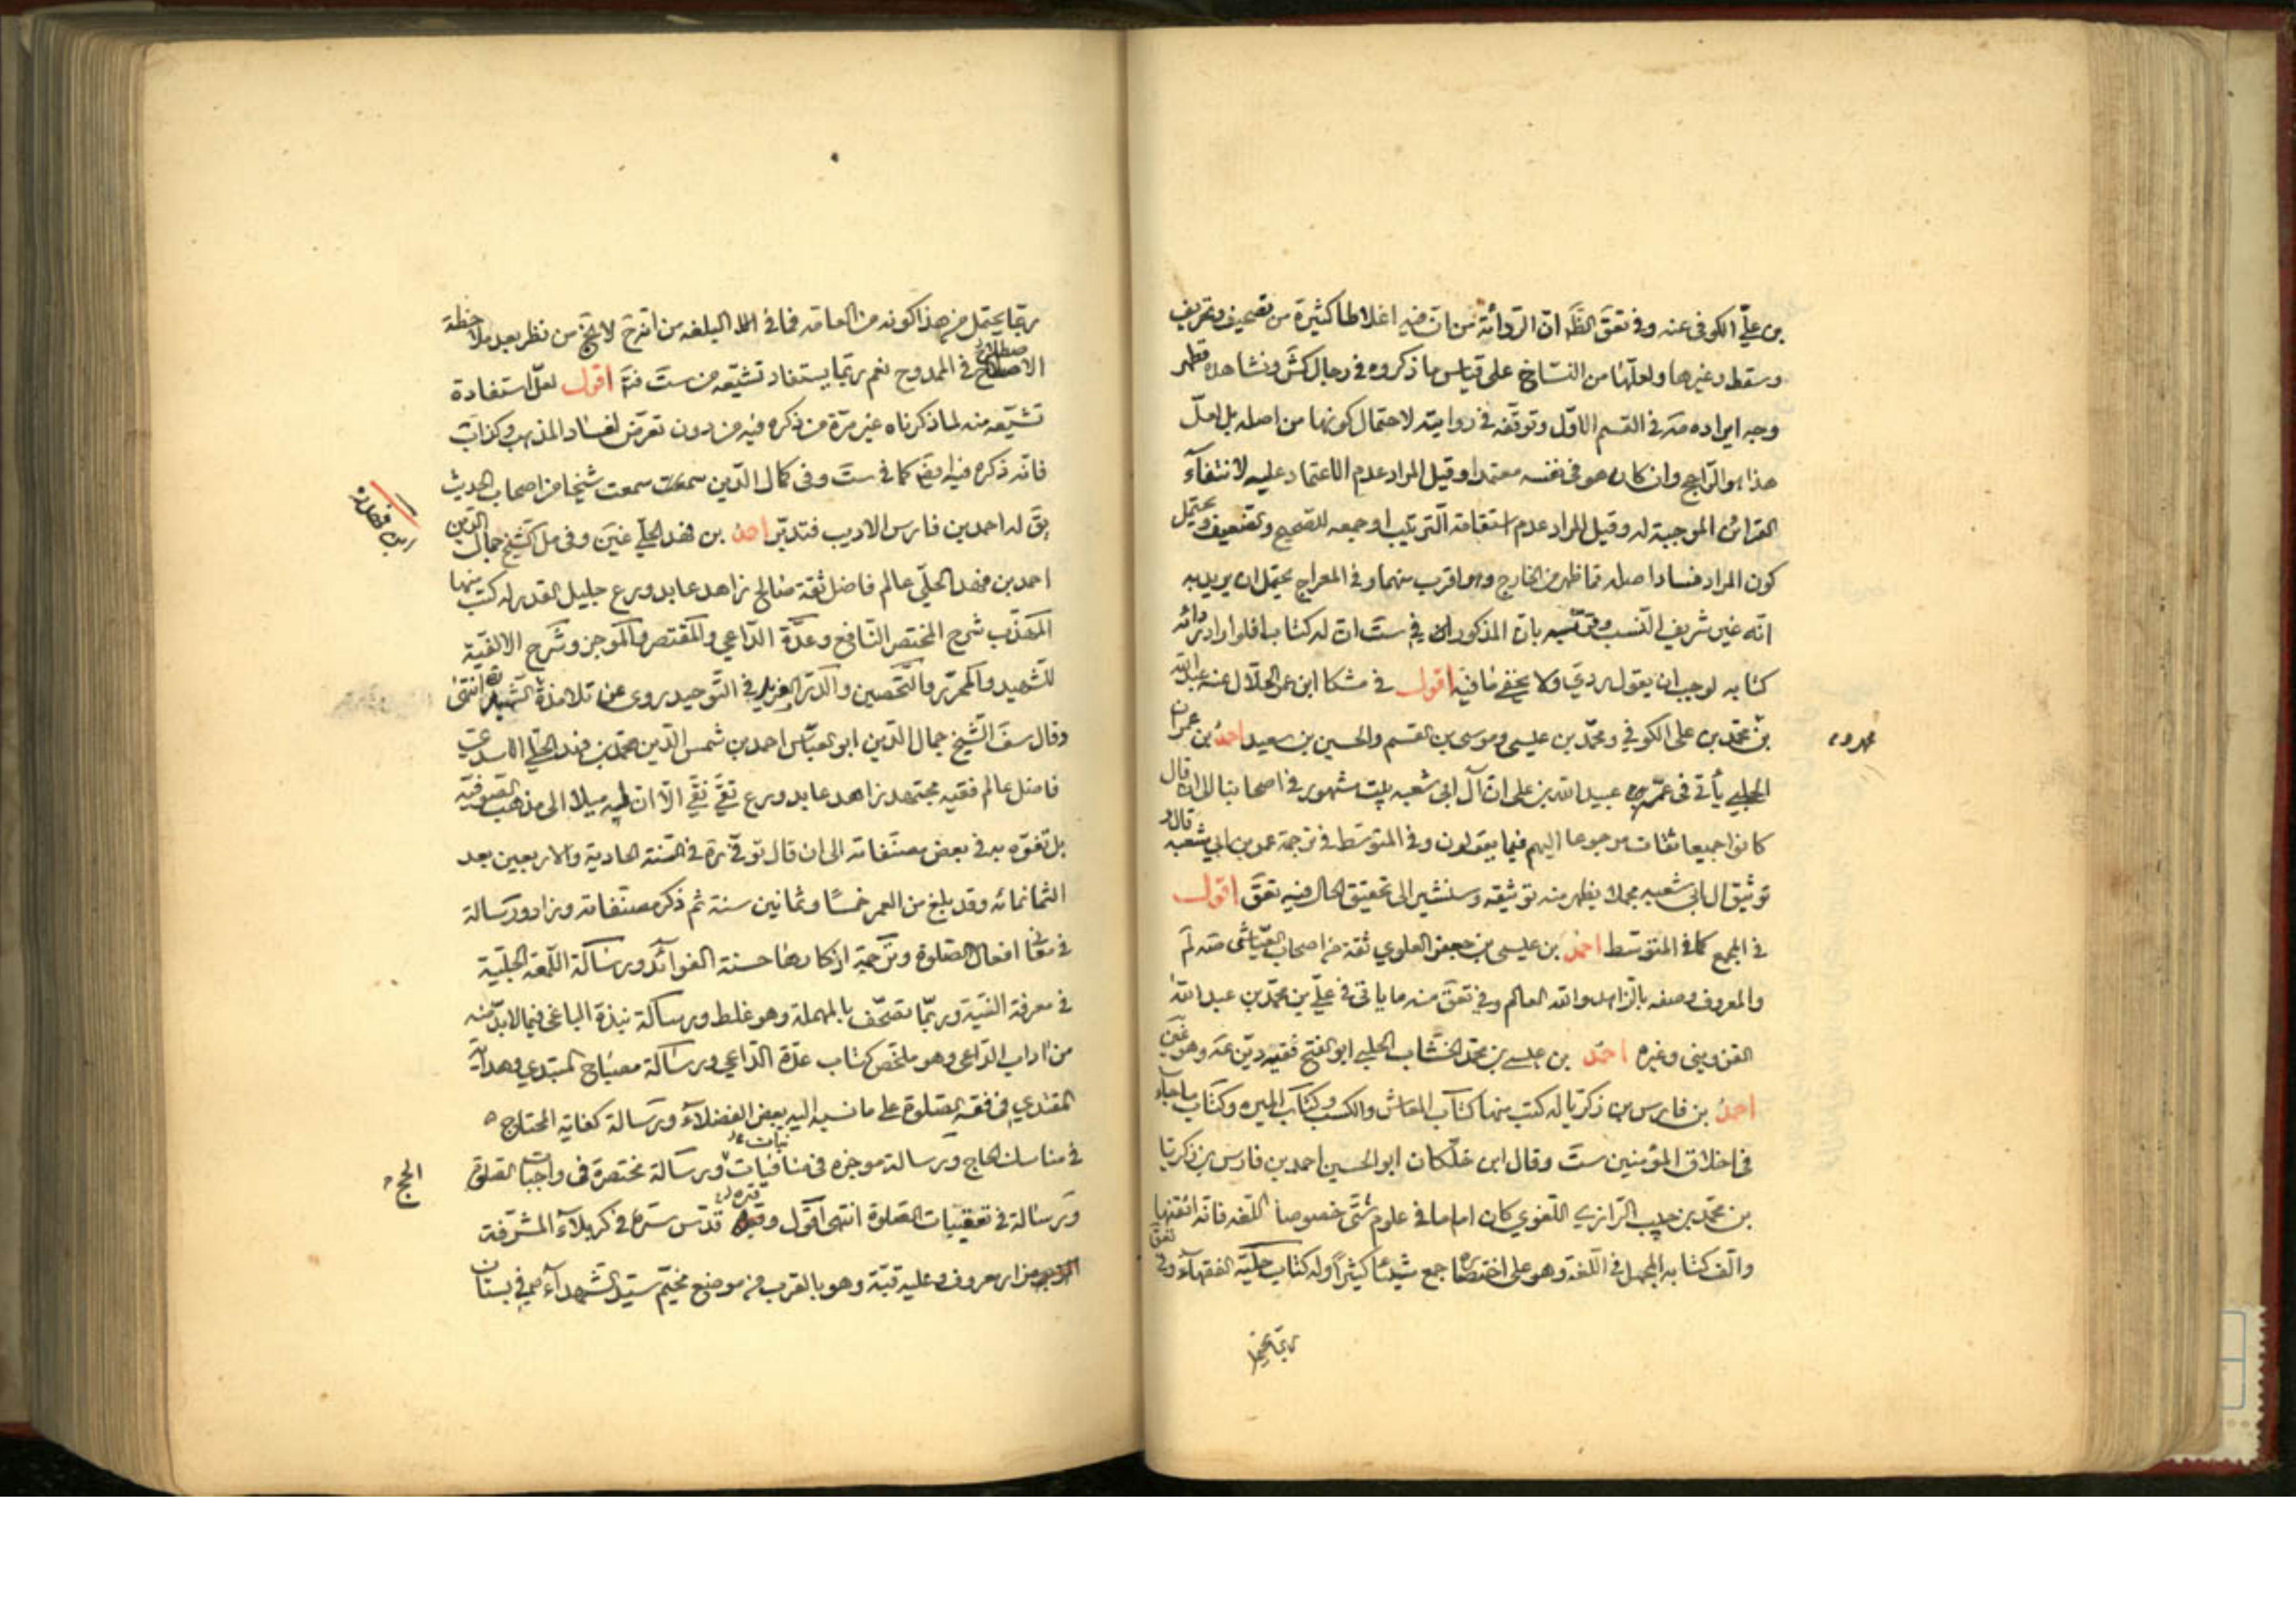 بن علي الكوفي عنه وفي تعق الظ ان الرواية من ان فيه اغلاطا كثيرة من تصحيف وتحريف
وسقط وغيرها ولعلها من النساخ على قياس ما ذكروه في رجال كش ونشاهده فظهر
وجه ايراده صه في القسم الاول وتوقفه في روايته لاحتمال كونها من اصله بل لعل
هذا هو الراجح وان كان هو في نفسه معتمدا وقيل المراد عدم الاعتماد عليه لانتفاء
القرائن الموجبة له وقيل المراد عدم استقامة الترتيب او جمعه للصحيح والضعيف ويحتمل
كون المراد فسادا صله مما ظهر من الخارج وهو اقرب منهما وفي المعراج يحتمل ان يريد به
انه غير شريف النسب وفيه بان المذكور في ست ان له كتاب فلو اراد رداءة
كتابه لوجب ان يقول رديه ولا يخفى ما فيه اقول في مشكا ابن عمر الحلال عنه عبد الله
بن محمد بن علي الكوفي ومحمد بن عيسى وموسى بن القسم والحسين بن سعيد احمد بن عمران
الحلبي يأتي في عمه عبيد الله بن علي ان آل ابي شعبه بيت مشهور في اصحابنا الى ان قال
كانوا جميعا ثقات مرجوعا اليهم فيما يقولون وفي المتوسط في ترجمة عمر بن ابي شعبه قالوا
توثيق آل ابي شعبه مجملا يظهر منه توثيقه وسنشير الى تحقيق الحال فيه تعق اقول
في المجمع كما في المتوسط احمد بن عيسى بن جعفر العلوي ثقة من اصحاب العياشي صه لم
والمعروف وصفه بالزاهد والله العالم وفي تعق منه ما يأتي في علي بن محمد بن عبد الله
القزويني وغيره احمد بن عيسى بن محمد الخشاب الحلبي ابو الفتح فقيه دين عه وهو غين
احمد بن فارس بن زكريا له كتب منها كتاب المعاش والكسب وكتاب الميره وكتاب ما جاء
في اخلاق المؤمنين ست وقال ابن خلكان ابو الحسين احمد بن فارس بن زكريا
بن محمد بن حبيب الرازي اللغوي كان اماما في علوم شتى خصوصا اللغه فانه اتقنها
والف كتابه المجمل في اللغة وهو على اختصاره جمع شيئا كثيرا وله كتاب حلية الفقهاء وفي تعق
ربما يحتمل
ربما يحتمل من هذا كونه من العامه فما في البلغه من انه ح لا يخ من نظر بعد ملاحظة
الاصطلاح في الممدوح نعم ربما يستفاد تشيعه من ست فت اقول لعل استفادة
تشيعه منه لما ذكرناه غير مرة من ذكره فيه من دون تعرض لفساد المذهب وكذا ب
فانه ذكره فيه ايض كما في ست وفي كمال الدين سمعت شيخا من اصحاب الحديث
يق له احمد بن فارس الاديب فتدبر احمد بن فهد الحلي غين وفي مل الشيخ جمال الدين
احمد بن فهد الحلي عالم فاضل ثقة صالح زاهد عابد ورع جليل القدر له كتب منها
المهذب شرح المختصر النافع وعدة الداعي والمقتصر والموجز وشرح الالفية
للشهيد والمحرر والتحصين والدر الفريد في التوحيد روى عن تلامذة الشهيد انتهى
وقال سف الشيخ جمال الدين ابو العباس احمد بن شمس الدين محمد بن فهد الحلي الاسدي
فاضل عالم فقيه مجتهد زاهد عابد ورع تقي نقي الا ان له ميلا الى مذهب الصوفيه
بل تفوه به في بعض مصنفاته الى ان قال توفي ره في السنة الحادية والاربعين بعد
الثمانمائه وقد بلغ من العمر خمسا وثمانين سنة ثم ذكر مصنفاته وزاد ورسالة
في معاني افعال الصلوة وترجمة اذكارها حسنة الفوائد ورسالة اللمعه الجلية
في معرفة النية وربما تصحف بالمهملة وهو غلط ورسالة نبذة الباغي فيما لا بد منه
من آداب الداعي وهو ملخص كتاب عدة الداعي ورسالة مصباح المبتدي وهداية
المقتدي في فقه الصلوة على ما نسبه اليه بعض الفضلاء ورسالة كفاية المحتاج
في مناسك الحاج ورسالة موجزه في منافيات نيات الحج ورسالة مختصرة في واجبات الصلوة
ورسالة في تعقيبات الصلوة انتهى اقول وقبره قدس سره في كربلاء المشرفة
مزار معروف وعليه قبة وهو بالقرب من موضع مخيم سيد الشهداء ع في بستان